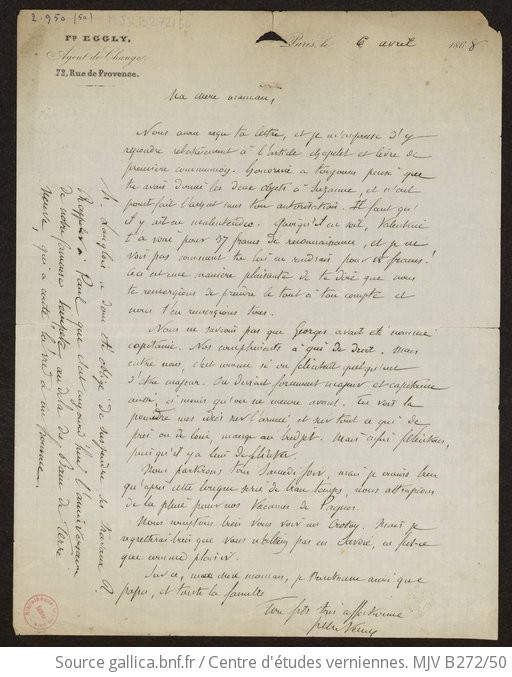 2.950 (50)
MJV B272/50
Fd EGGLY,
Agent de Change,
72, Rue de Provence.
Paris, le 6 avril 1868
Ma chère maman,
Nous avons reçu ta lettre, et je m'empresse d'y
répondre relativement à l'article chapelet et livre de
première communion. Honorine a toujours pensé que
tu avais donné les deux objets à Suzanne, et n'ait
point fait l'achat sans ton autorisation. Il faut qu'
il y ait eu malentendu. Quoiqu'il en soit, Valentine
t'a voué pour 37 francs de reconnaissance, et je ne
vois pas comment tu lui en voudrais pour francs!
Ceci est une manière plaisante de te dire que nous
te remercions de prendre le tout à ton compte et
nous t'en remercions tous.
Nous ne savions pas que Georges avait été nommé
capitaine. Nos compliments à qui de droit. Mais
entre nous, c'est comme si on félicitait quelqu'un
d'être majeur. On devient forcément majeur et capitaine
aussi, à moins qu'on ne meure avant. Tu vois là
mes idées sur l'armée et sur tout ce qui de
près ou de loin, mange au budget. Mais aussi félicitons,
puisqu'il y a lieu de féliciter.
Nous partirons tous Samedi soir, mais je crains bien
qu'après cette longue série de beau temps, nous attrapions
de la pluie pour nos vacances de Pâques.
Nous comptons bien vous voir au Crotoy. Mais je
regretterai bien que vous n'alliez pas en Savoie, ne fût-ce
que comme plaisir.
Sur ce, ma chère maman, je t'embrasse ainsi que
papa, et toute la famille
Ton fils très affectionné
Jules Verne
M. Langlois a donc été obligé de suspendre les travaux?
Rappeler à Paul que c'est aujourd'hui l'anniversaire
de notre fameuse tempête au delà du Banc de Terre
Neuve, qui a coûté la vie à un homme.
Source gallica.bnf.fr / Centre d'études verniennes. MJV B272/50